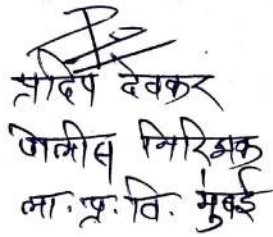 प्रदिप देवकर
पोलीस निरिक्षक
ला. प्र. वि. मुंबई